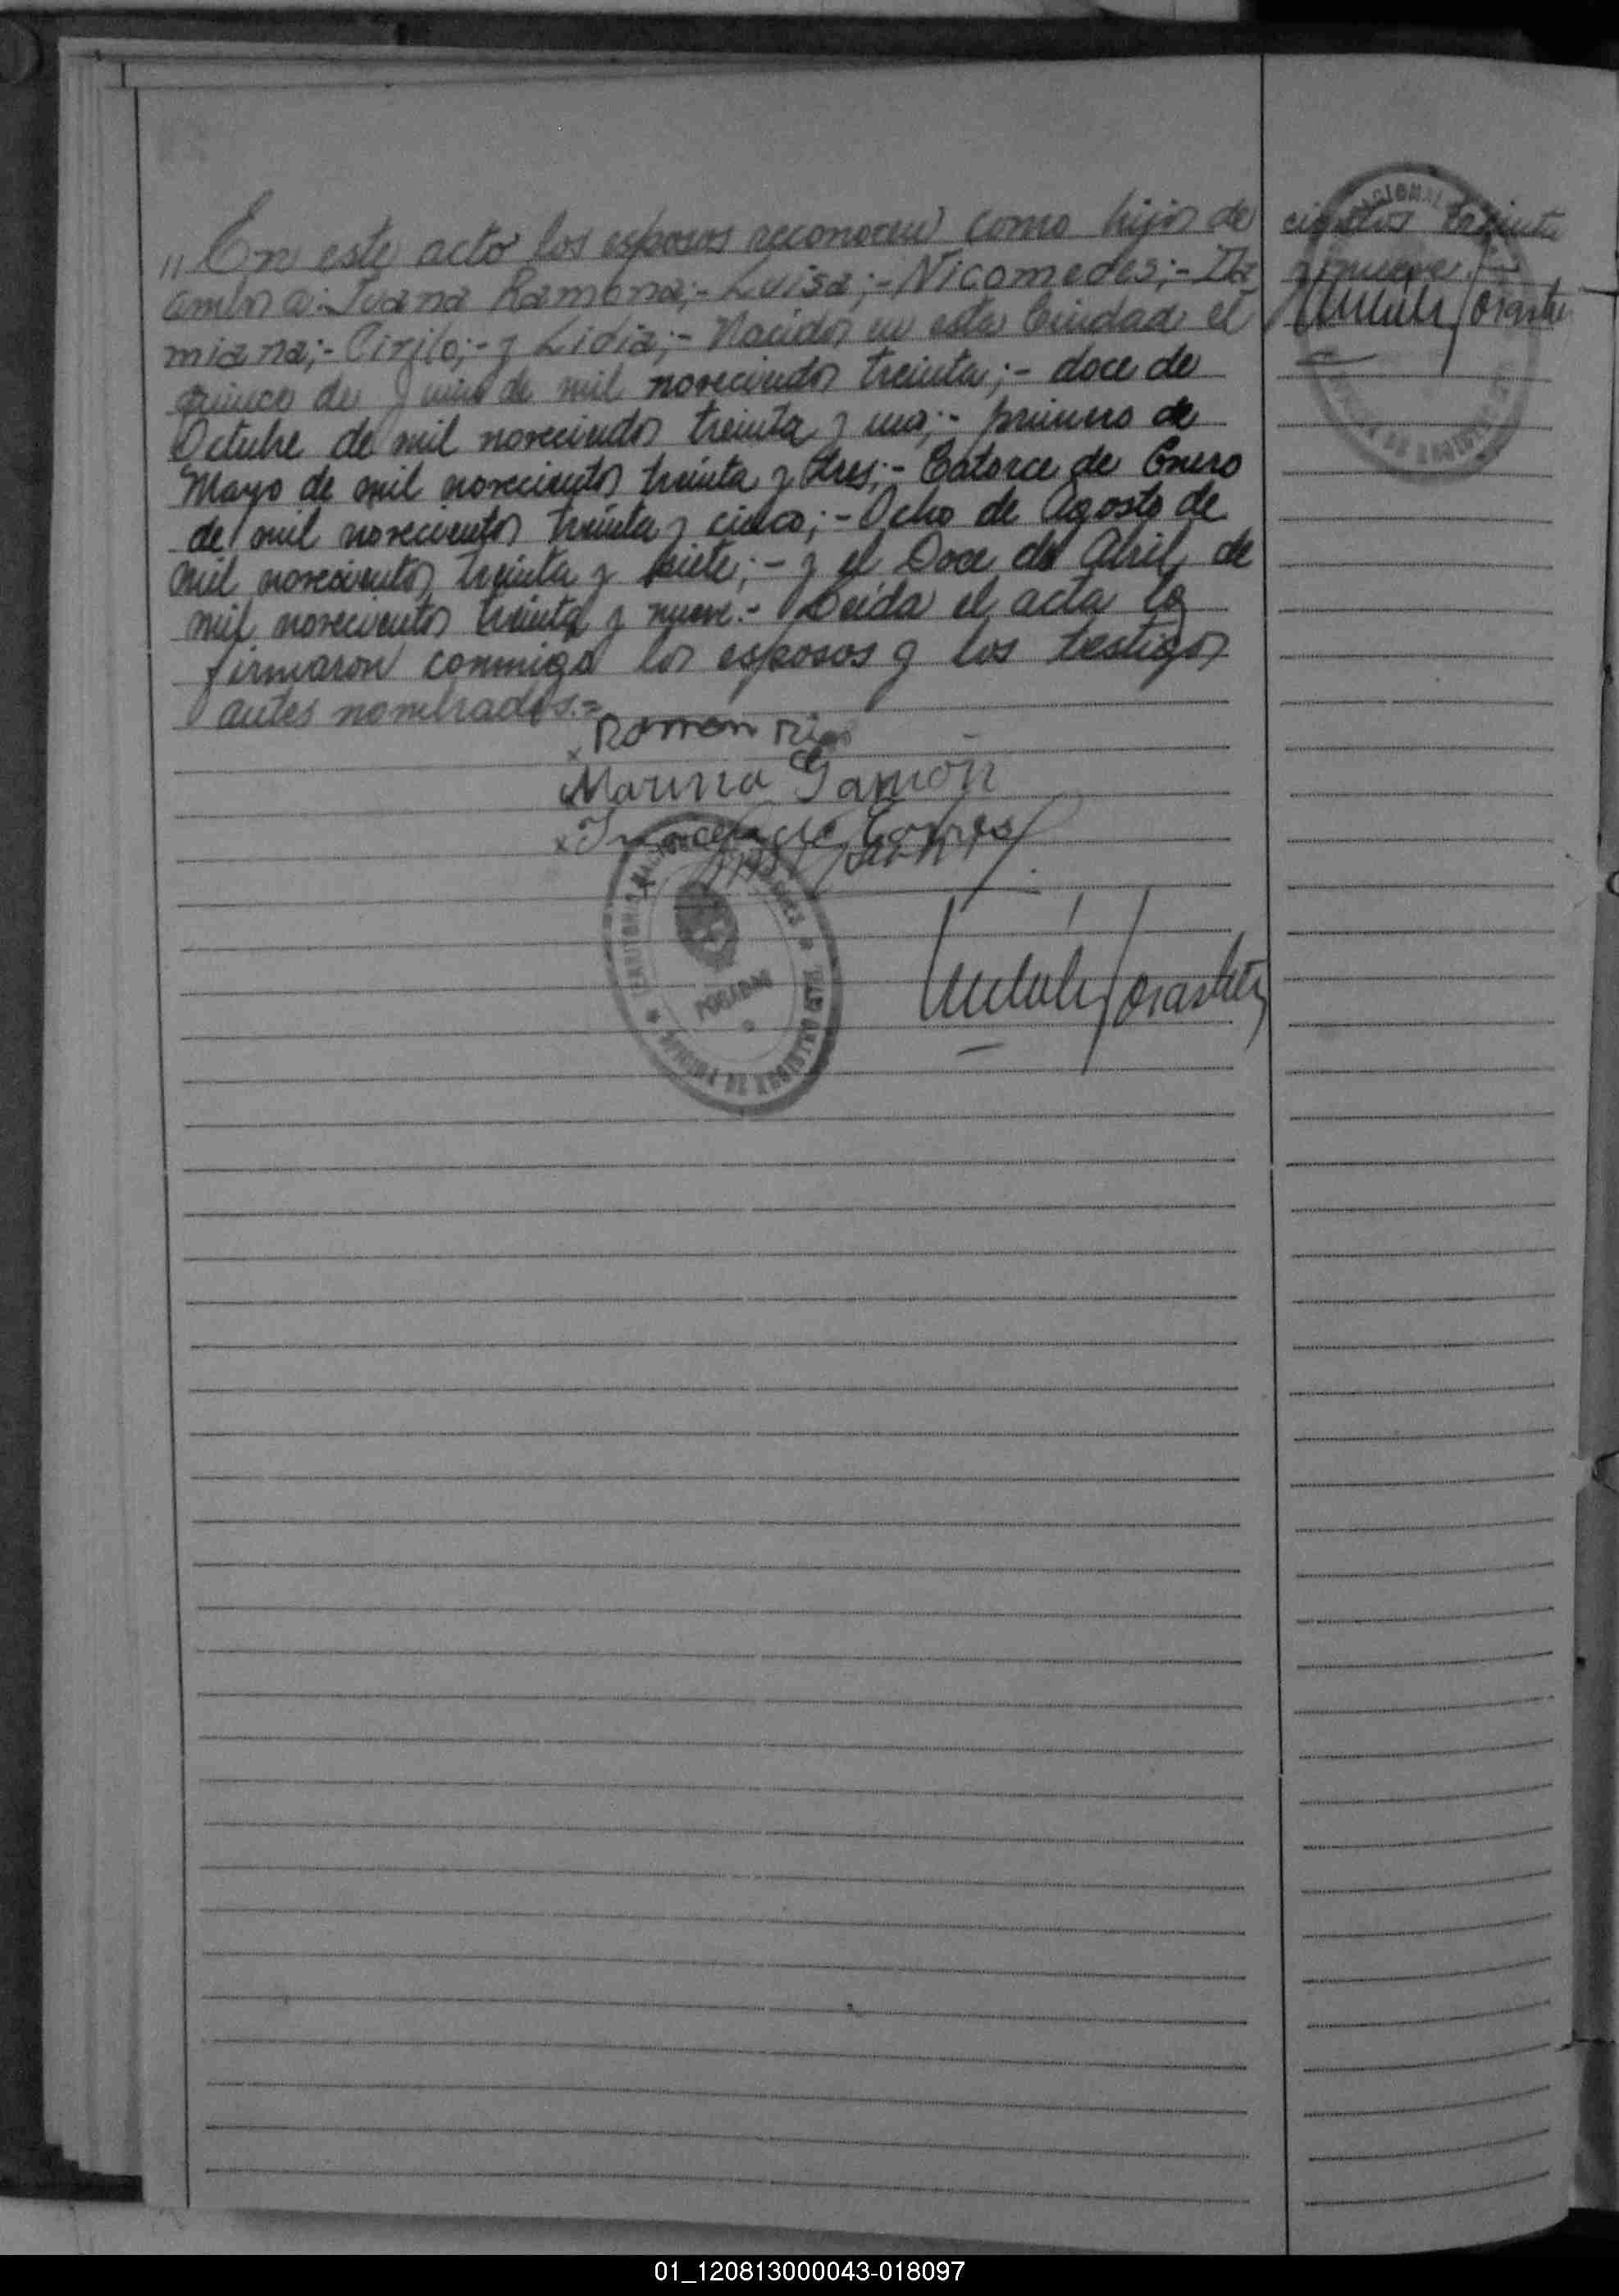 „En este acto los esposos reconocen como hijos de
ambos a: Juana Ramona;- Luisa;- Nicomedes;- Da
miana;- Cirilo;- y Lidia;- Nacidos en esta Ciudad el
quince de Junio de mil novecientos treinta;- doce de
Octubre de mil novecientos treinta y uno;- primero de
Mayo de mil novecientos treinta y tres;- Catorce de Enero
de mil novecientos treinta y cinco;- Ocho de Agosto de
mil novecientos treinta y siete;- y el Doce de Abril de
mil novecientos treinta y nueve.- Leída el acta la
firmaron conmigo los esposos y los testigos
antes nombrados.=
x Ramon Rios
Marina Gamón
x Torres
TERRITORIO
POSADAS
OFICINA DE REGISTRO CIVIL
cientos treinta
y nueve.
NACIONAL
DE REGISTRO
01_120813000043-018097